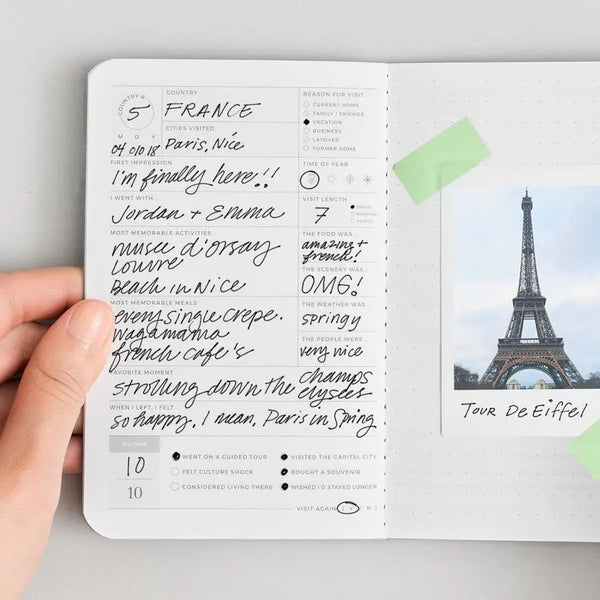 COUNTRY #
5
COUNTRY
FRANCE
CITIES VISITED
Paris, Nice
M D Y
04 010 18
FIRST IMPRESSION
I'm finally here!!
I WENT WITH...
Jordan + Emma
MOST MEMORABLE ACTIVITIES
musee d'orsay
louvre
Beach in Nice
MOST MEMORABLE MEALS
every single crepe.
wagamama
french cafe's
FAVORITE MOMENT
strolling down the champs
elysées
WHEN I LEFT, I FELT
so happy. I mean, Paris in Spring
REASON FOR VISIT
CURRENT HOME
FAMILY / FRIENDS
VACATION
BUSINESS
LAYOVER
FORMER HOME
TIME OF YEAR
VISIT LENGTH
7
DAY(S)
MONTH(S)
YEAR(S)
THE FOOD WAS...
amazing +
french!
THE SCENERY WAS...
OMG!
THE WEATHER WAS...
springy
THE PEOPLE WERE...
very nice
RATING
10
10
WENT ON A GUIDED TOUR
FELT CULTURE SHOCK
CONSIDERED LIVING THERE
VISITED THE CAPITAL CITY
BOUGHT A SOUVENIR
WISHED I'D STAYED LONGER
VISIT AGAIN [ Y / N ]
TOUR DE EIFFEL